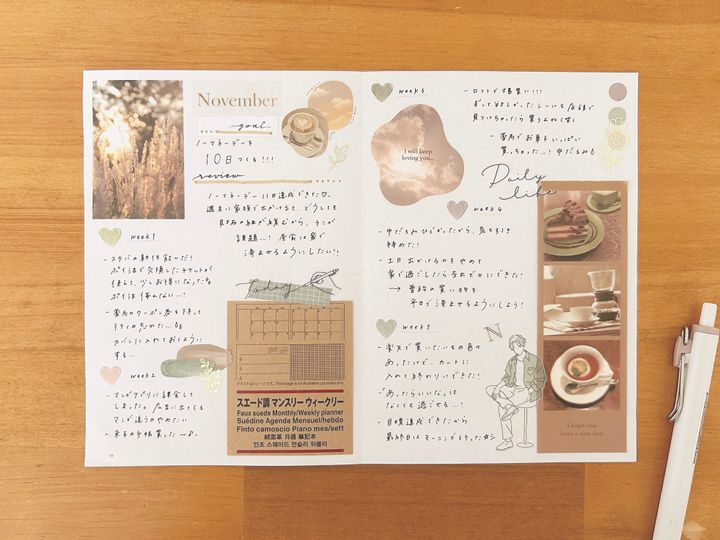 November
goal
ノーマネーデーを
10日つくる!!!
review
ノーマネーデー11日達成できた♡
週末に家族で出かけると、どうしても
課題…! 昼食は家で
済ませるようにしたい!!
week1
- スタバの新作飲んだ!
ポイ活で交換したチケットが
使えて、少しお得になった
ポイ活侮れない…!
- 薬局のクーポン券を持って
行くの忘れた…
カバンに入れておくように
する…
week2
- マンガアプリに課金して
しまった。広告に出てくる
マンガ違うのやめたい
- 来年の手帳買った〜♪
Today
イラストはイメージです。This image is for illustrative purposes only.
スエード調 マンスリー ウィークリー
Faux suede Monthly/Weekly planner
Suédine Agenda Mensuel/hebdo
Finto camoscio Piano mes/sett
絨面革 月週 筆記本
인조 스웨이드 먼슬리 위클리
week3
- ロフトで爆買い!!!
ずっとほしかったシールを店頭で
見つけちゃったら買うよね(笑)
- 薬局でお菓子いっぱい
買っちゃった…! 中だるみ
I will keep
loving you...
Daily
like
week4
- 中だるみひどかったから、気を引き
締めた!
- 土日出かけるのをやめて
家で過ごしたら支出ゼロにできた!
→ 普段の買い物を
平日で済ませるようにしよう!
week5
- 楽天で買いたいもの色々
あったけど、カートに
入れて終わりにできた!
- あったらいいな、は
なくても過ごせる…!
- 目標達成できたから
最終日はモーニング行きった
N
I hope you
have a nice day.